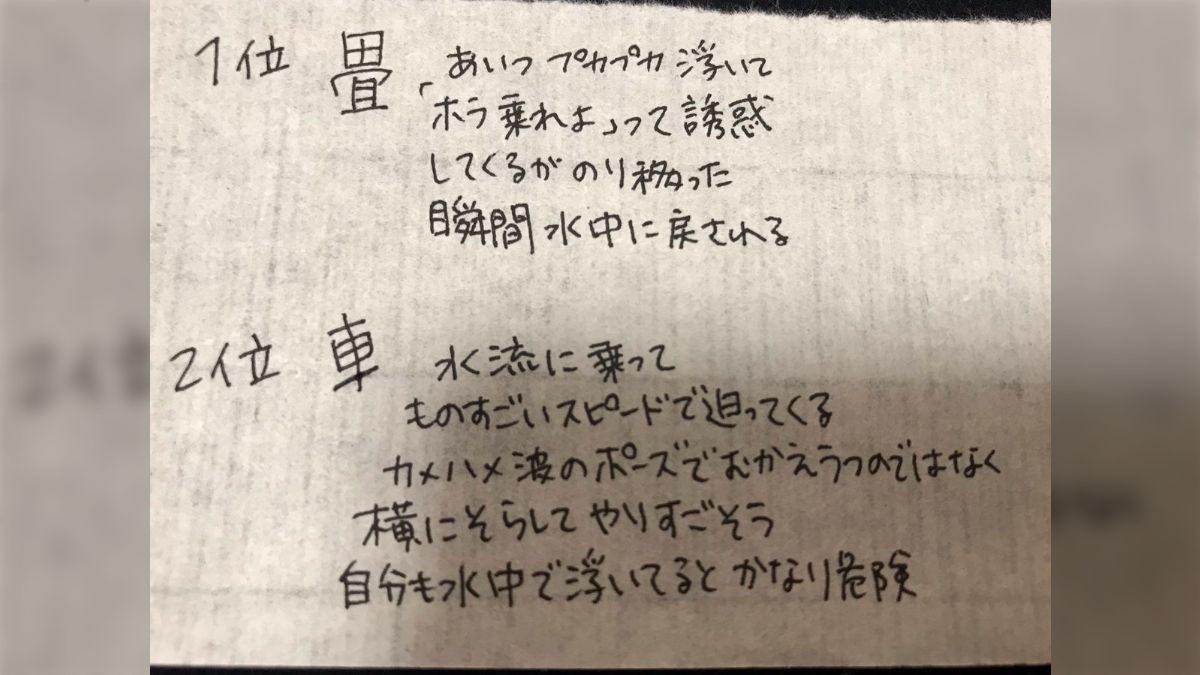 1位 畳 あいつ プカプカ 浮いて
「ホラ乗れよ」って誘惑
してくるが のり移った
瞬間 水中に戻される
2位 車 水流に乗って
ものすごいスピードで迫ってくる
カメハメ波のポーズでむかえうつのではなく
横にそらして やりすごそう
自分も水中で浮いてると かなり危険